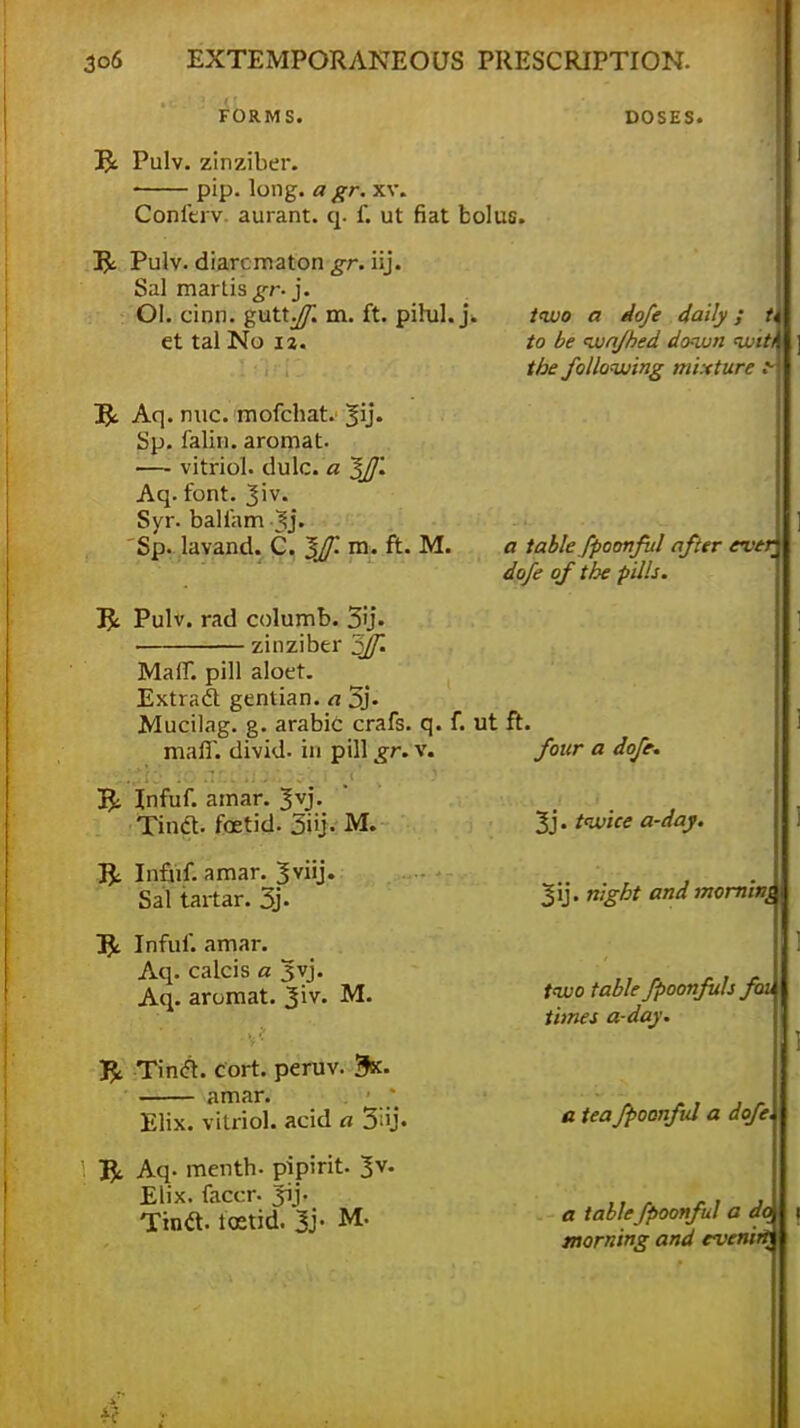 306 EXTEMPORANEOUS PRESCRIPTION.
FORMS. DOSES.
℞ Pulv. zinziber.
—— pip. long. a gr. xv.
Conſerv. aurant. q. ſ. ut fiat bolus.
℞ Pulv. diarcmaton gr. iij.
Sal martis gr. j.
Ol. cinn. gutt. ſſ. m. ft. pilul. j. two a doſe daily;
et tal No 12. to be waſhed down with
the following mixture :
℞ Aq. nuc. moſchat. ℥ij.
Sp. ſalin. aromat.
—— vitriol. dulc. a ℥ſſ.
Aq. font. ℥iv.
Syr. balſam ℥j.
Sp. lavand. C. ℥ſſ. m. ft. M. a table ſpoonful after every
doſe of the pills.
℞ Pulv. rad columb. ʒij.
—— zinziber ʒſſ.
Maſſ. pill aloet.
Extract gentian. a ʒj.
Mucilag. g. arabic craſs. q. ſ. ut ft.
maſſ. divid. in pill gr. v. four a doſe.
℞ Infuſ. amar. ℥vj.
Tinct. fœtid. ʒiij. M. ℥j. twice a-day.
℞ Infuſ. amar. ℥viij.
Sal tartar. ʒj. ℥ij. night and morning
℞ Infuſ. amar.
Aq. calcis a ℥vj.
Aq. aromat. ℥iv. M. two table ſpoonfuls
times a-day.
℞ Tinct. cort. peruv. ʒx.
—— amar.
Elix. vitriol. acid a ʒiij. a tea ſpoonful a doſe.
℞ Aq. menth. pipirit. ℥v.
Elix. ſaccr. ℥ij.
Tinct. fœtid. ℥j. M. a table ſpoonful a
morning and evening